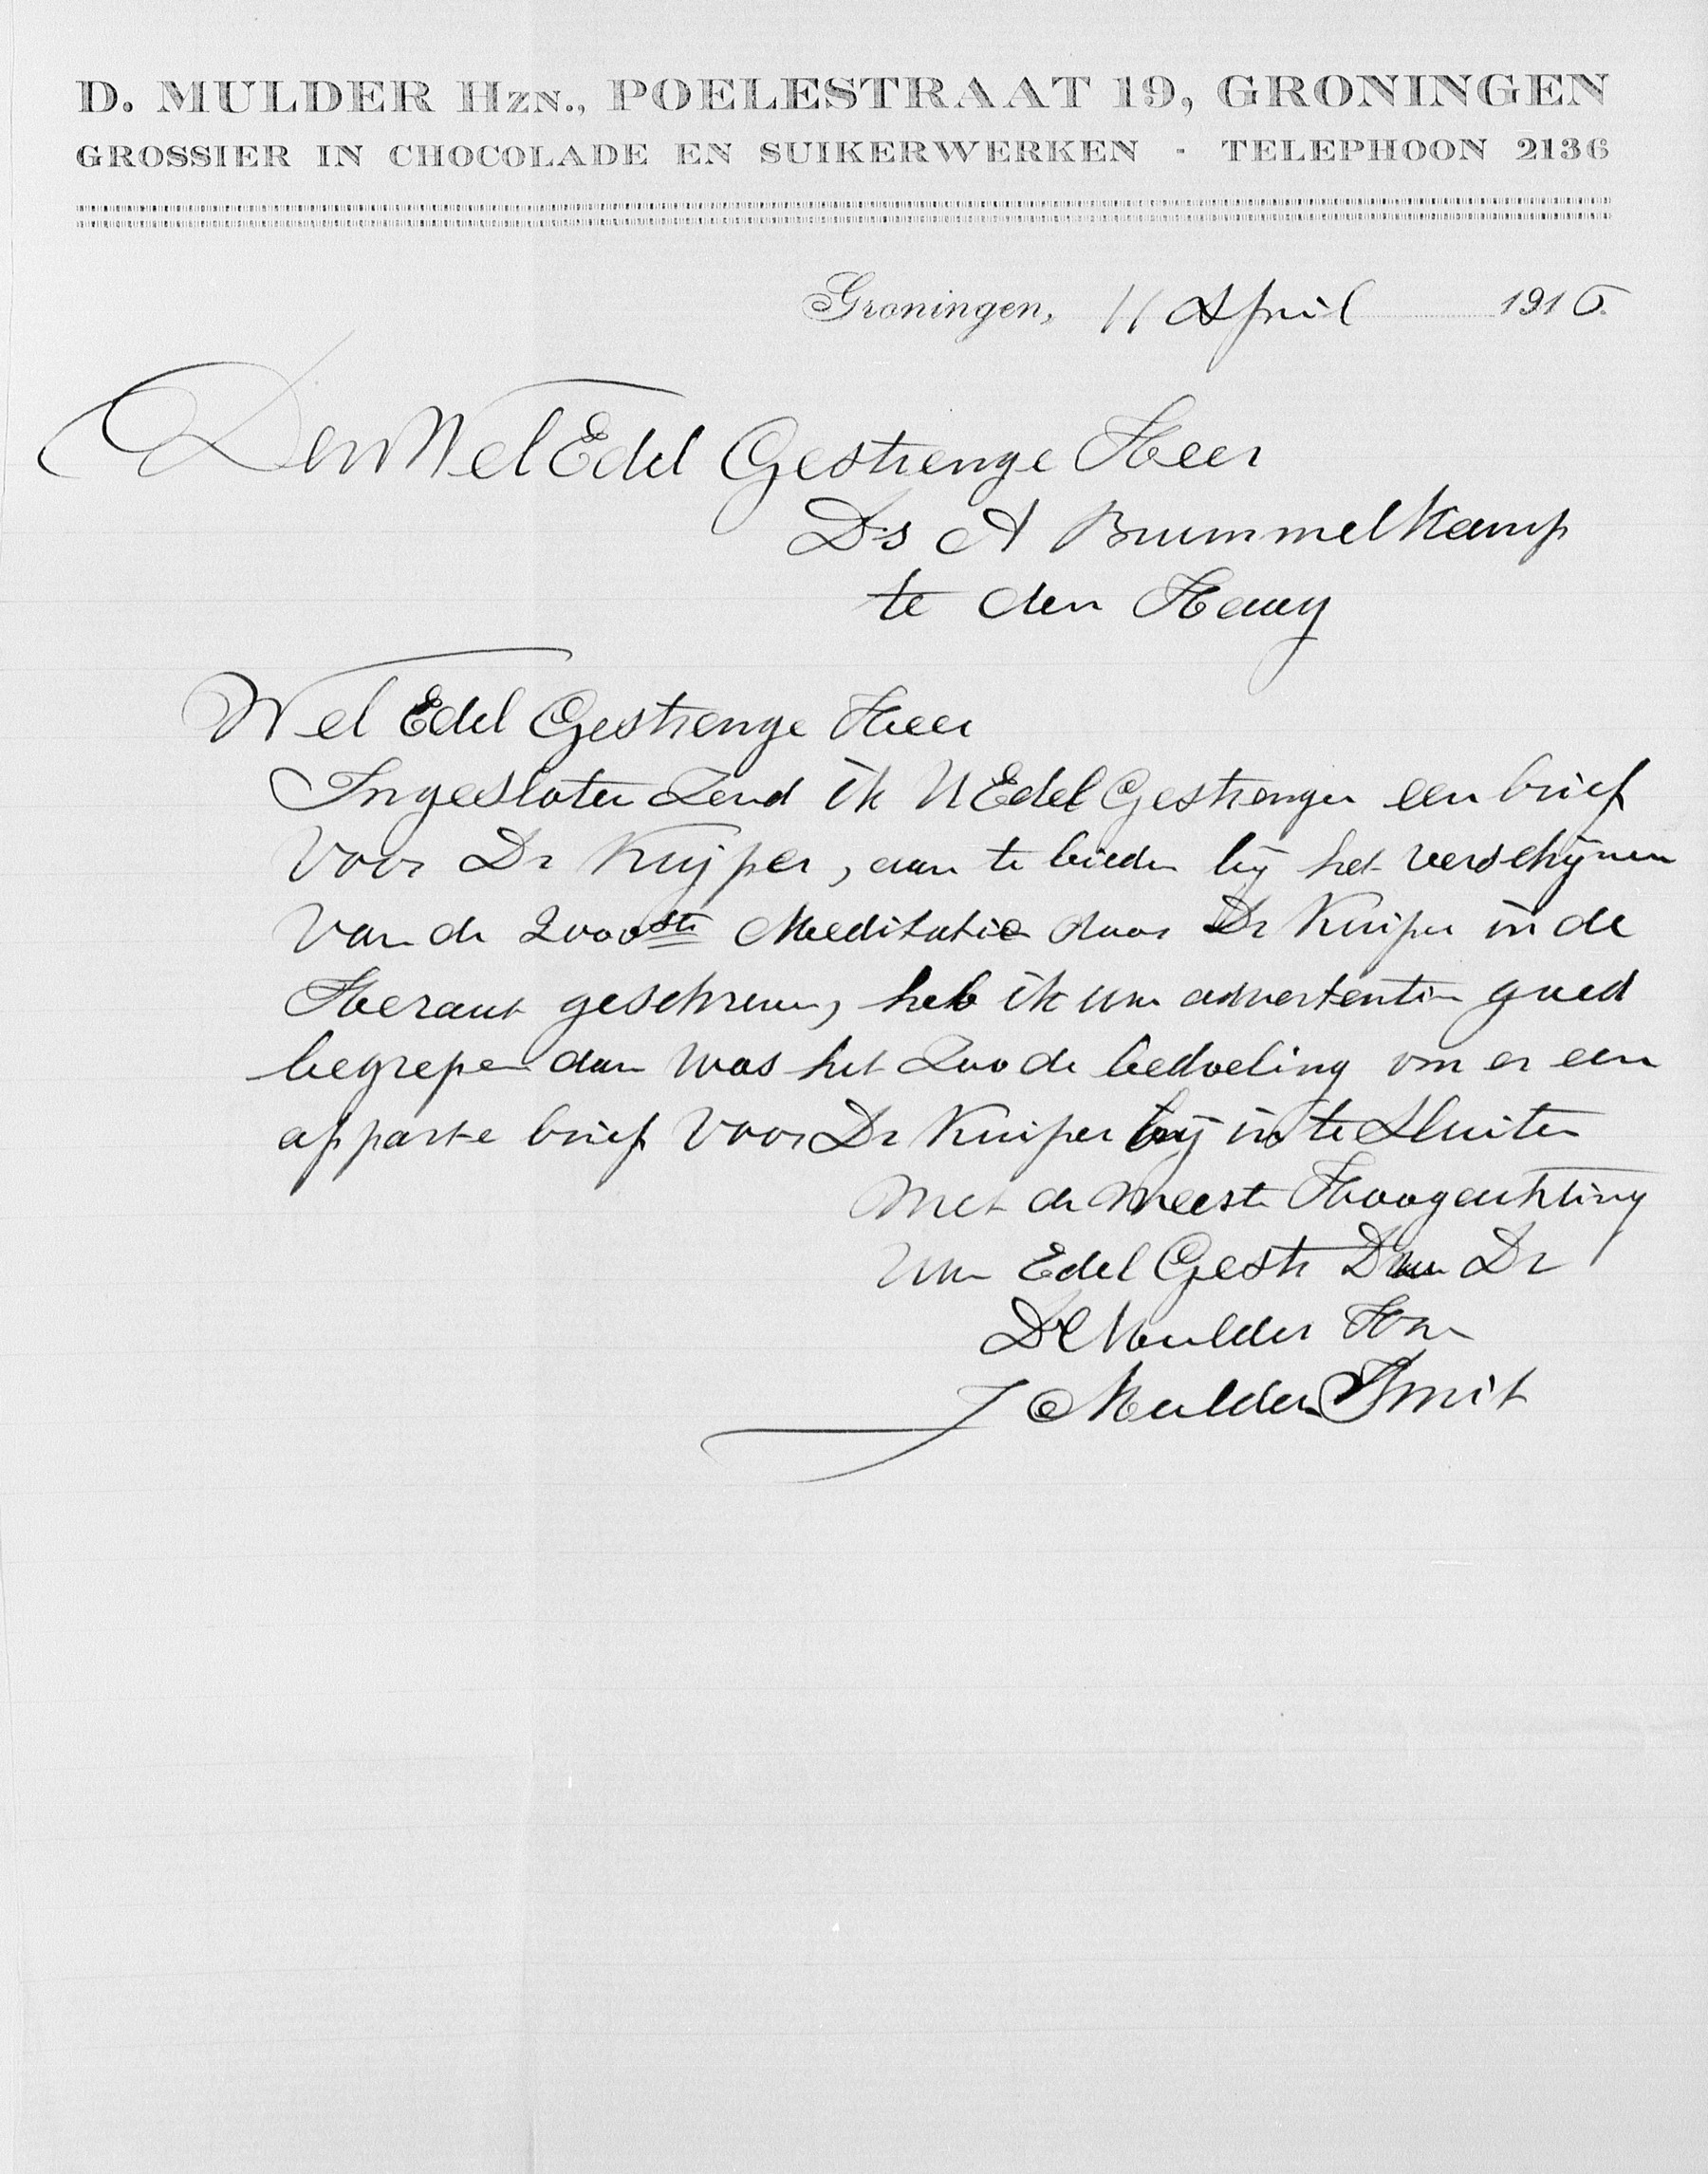 D. MULDER HZN., POELESTRAAT 19, GRONINGEN
GROSSIER IN CHOCOLADE EN SUIKERWERKEN - TELEPHOON 2136
Groningen, 11 April 1916.
Den Wel Edel Gestrenge Heer
Ds A Brummelkamp
te den Haag
Wel Edel Gestrenge Heer
Ingesloten Zend ik UEdel Gestrenger een brief
Voor Dr Kuijper, aan te bieden bij het verschijnen
Van de 2000ste Meditatie door Dr Kuiper in de
Heraut geschreven, heb ik uw advertentin goed
begrepen dan was het Zoo de bedoeling om er een
apparte brief Voor Dr Kuiper bij in te Sluiten
Met de Meeste Hoogachting
Uw Edel Gestr Dw Dr
D Mulder Hzn
J Mulder Smit